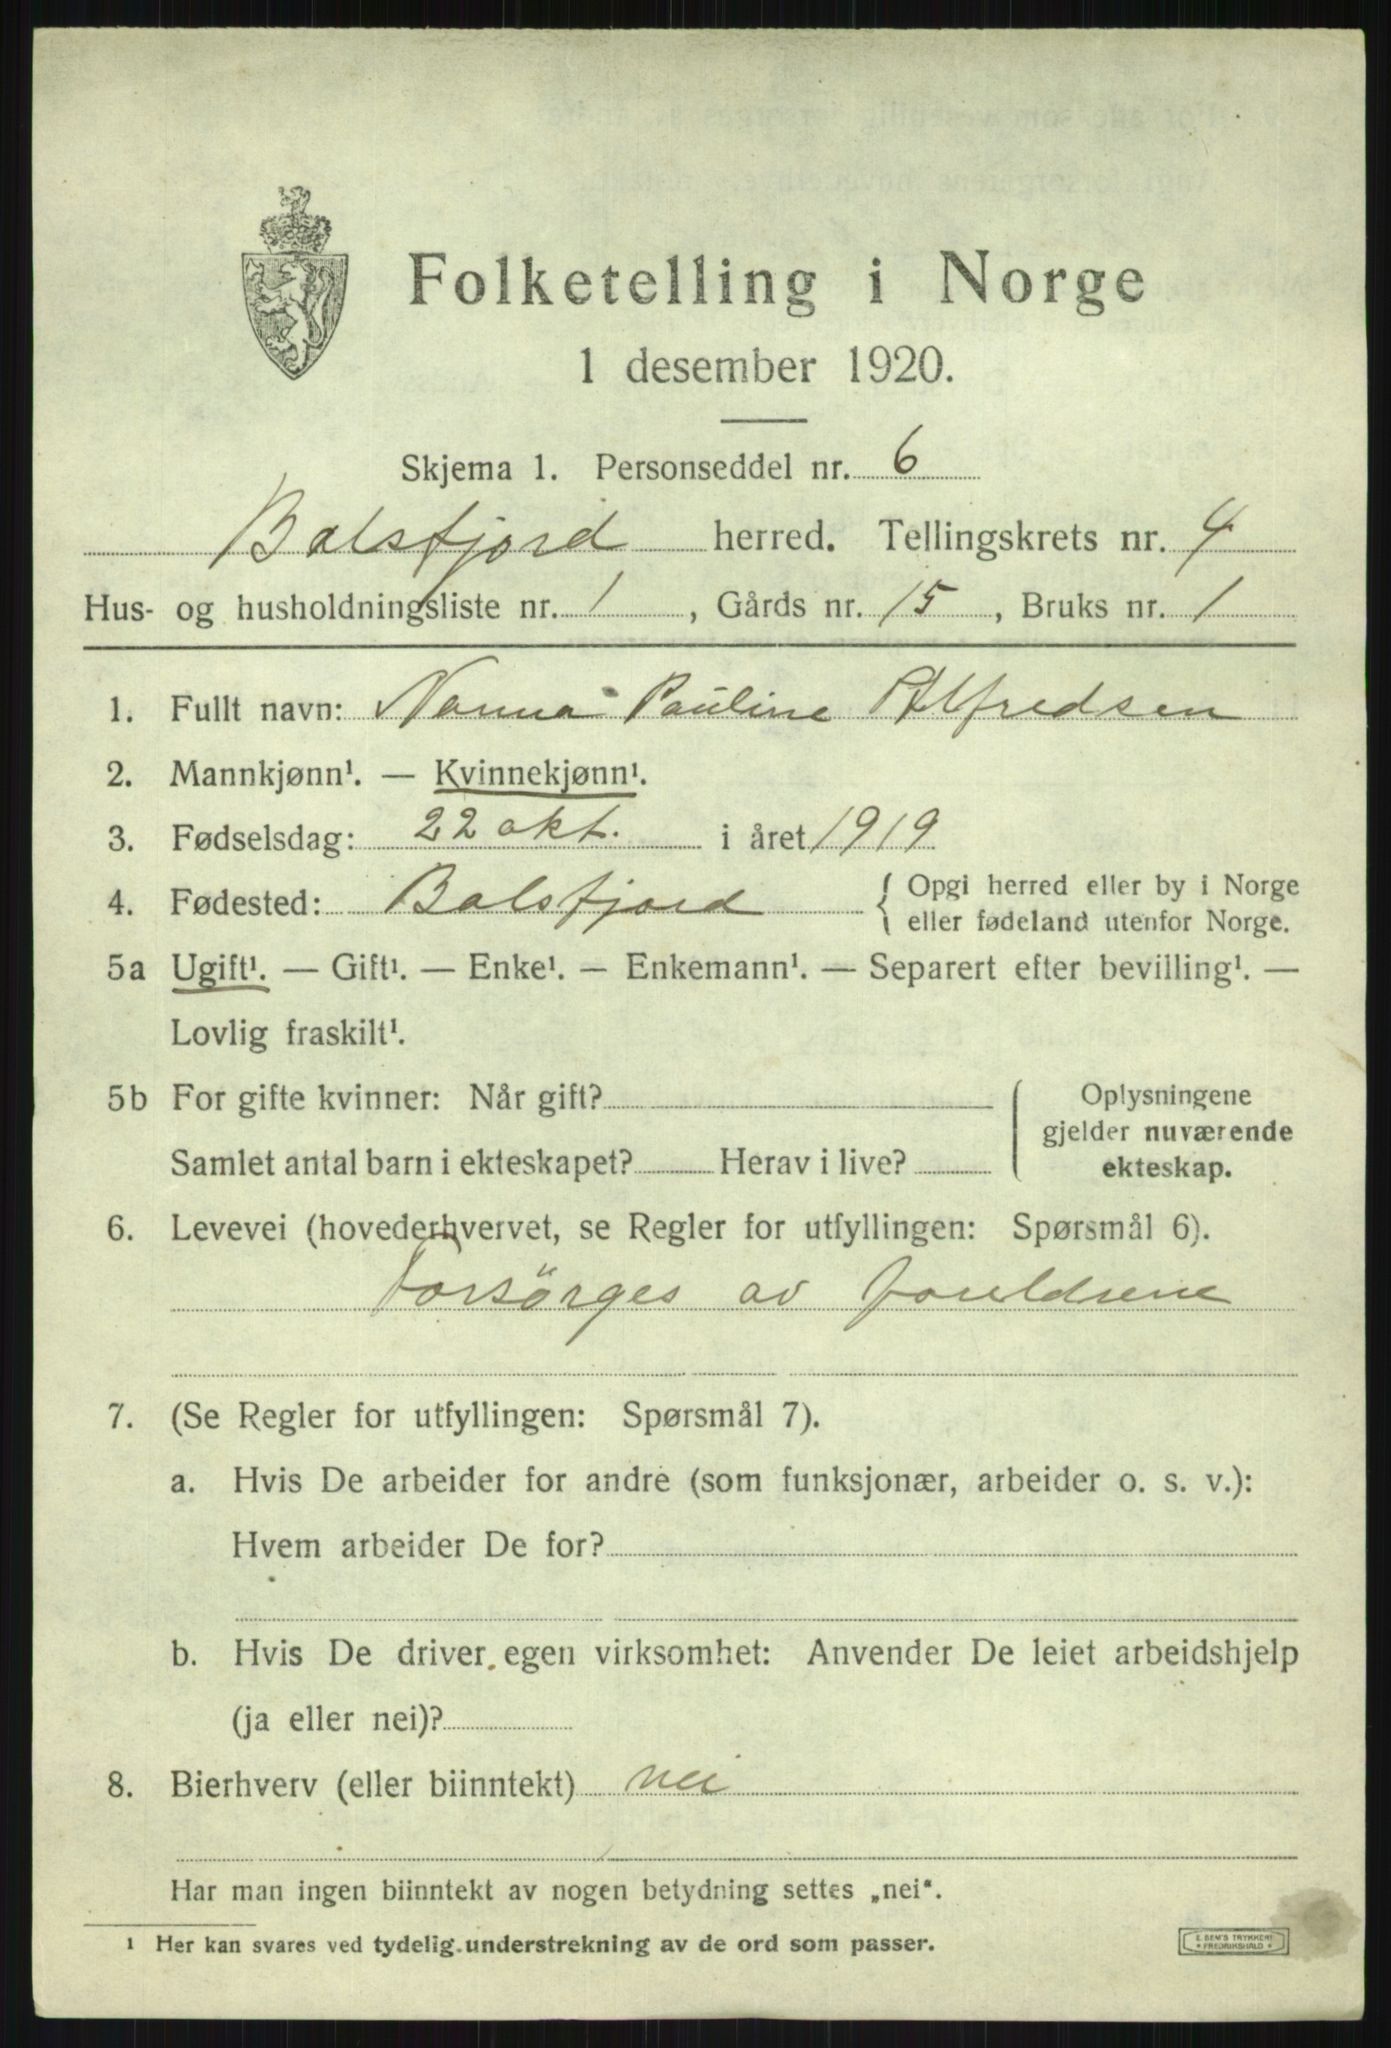 Folketelling i Norge
1 desember 1920.
Skjema 1. Personseddel nr. 6
Balsfjord herred. Tellingskrets nr. 4
Hus- og husholdningsliste nr. 1, Gårds nr. 15, Bruks nr. 1
1. Fullt navn: Nanna Pauline Alfredsen
2. Mannkjønn¹. — Kvinnekjønn¹.
3. Fødselsdag: 22 okt. i året 1919
4. Fødested: Balsfjord { Opgi herred eller by i Norge
eller fødeland utenfor Norge.
5a Ugift¹. — Gift¹. — Enke¹. — Enkemann¹. — Separert efter bevilling¹. —
Lovlig fraskilt¹.
5b For gifte kvinner: Når gift? Oplysningene
gjelder nuværende
Samlet antal barn i ekteskapet? Herav i live? ekteskap.
6. Levevei (hovederhvervet, se Regler for utfyllingen: Spørsmål 6).
Forsörges av foreldrene
7. (Se Regler for utfyllingen: Spørsmål 7).
a. Hvis De arbeider for andre (som funksjonær, arbeider o. s. v.):
Hvem arbeider De for?
b. Hvis De driver egen virksomhet: Anvender De leiet arbeidshjelp
(ja eller nei)?
8. Bierhverv (eller biinntekt) nei
Har man ingen biinntekt av nogen betydning settes „nei“.
¹ Her kan svares ved tydelig understrekning av de ord som passer.
E. SEM'S TRYKKERI
FREDRIKSHALD